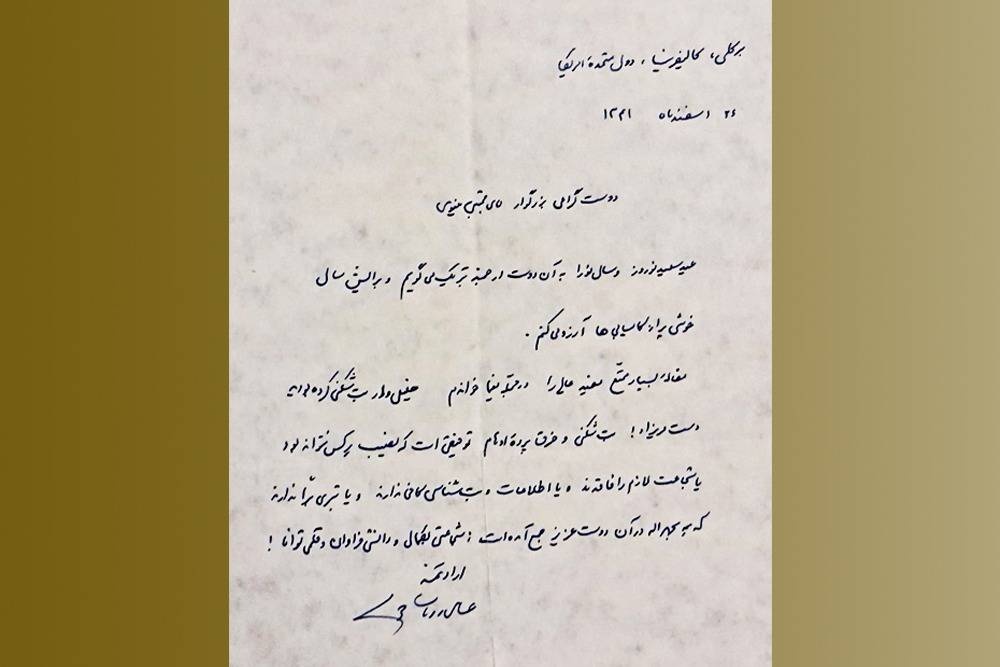 برکلی، کالیفرنیا، دول متحدهٔ امریکا
۲۶ اسفندماه ۱۳۴۱
دوست گرامی بزرگوار آقای مجتبی مینوی
عید سعید نوروز و سال نو را به آن دوست ارجمند تبریک می‌گویم و برایش سال
خوشی پر از کامیابی‌ها آرزو می‌کنم.
مقالهٔ بسیار ممتّع مفید عالی را در مجلهٔ یغما خواندم خلیل‌وار بت‌شکنی کرده بودید
دست مریزاد! بت‌شکنی و خرق پردهٔ اوهام توفیقی است که نصیب هرکس نتواند بود
یا شجاعت لازم را فاقدند و یا اطلاعات و بت‌شناسی کافی ندارند و یا تبری برّا ندارند
که هر سه بحمدالله در آن دوست عزیز جمع آمده است: شجاعتی بکمال و دانشی فراوان و قلمی توانا!
ارادتمند